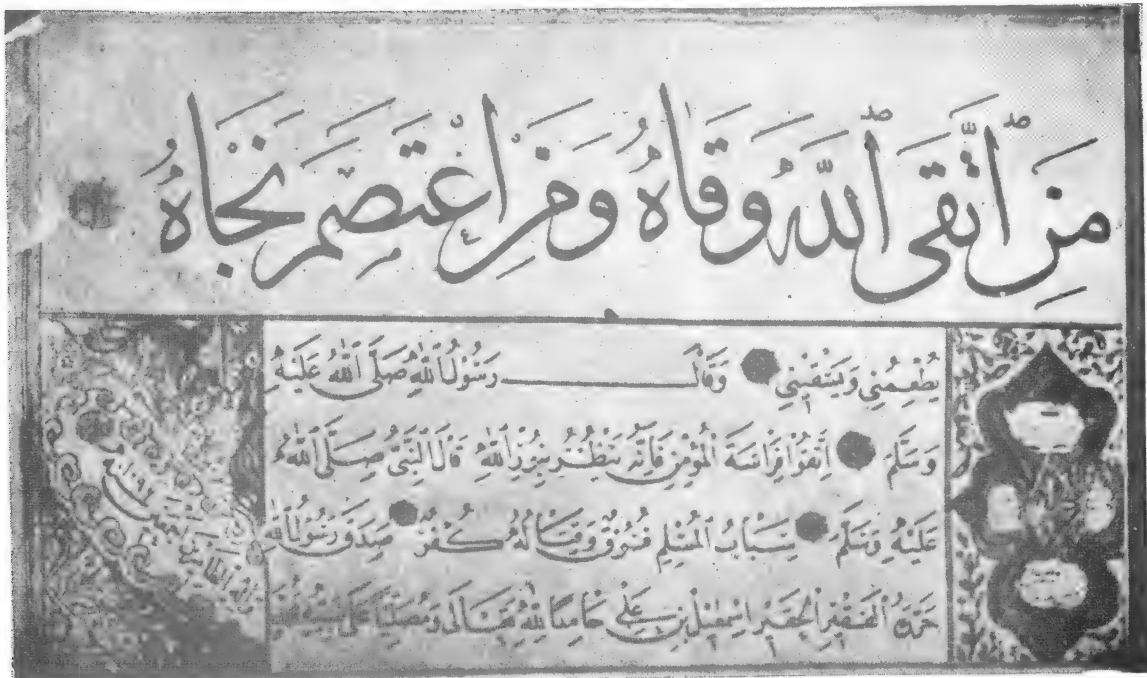 مَنِ ٱتَّقَى ٱللَّهَ وَقَاهُ وَمَنِ اعْتَصَمَ نَجَاهُ
يُطْعِمُنِي وَيَسْقِينِي وَقَالَ رَسُولُ اللهِ صَلَّى اللهُ عَلَيْهِ
وَسَلَّمَ اِتَّقُوا فِرَاسَةَ الْمُؤْمِنِ فَاِنَّهُ يَنْظُرُ بِنُورِ اللهِ قَالَ النَّبِيُّ صَلَّى اللهُ
عَلَيْهِ وَسَلَّمَ سِبَابُ الْمُسْلِمِ فُسُوقٌ وَقِتَالُهُ كُفْرٌ صَدَقَ رَسُولُ اللهِ
حَرَّرَهُ الْفَقِيرُ الْحَقِيرُ اِسْمٰعِيلُ بْنُ عَلِي حَامِدًا لِلّٰهِ تَعَالَى وَمُصَلِّيًا عَلَى